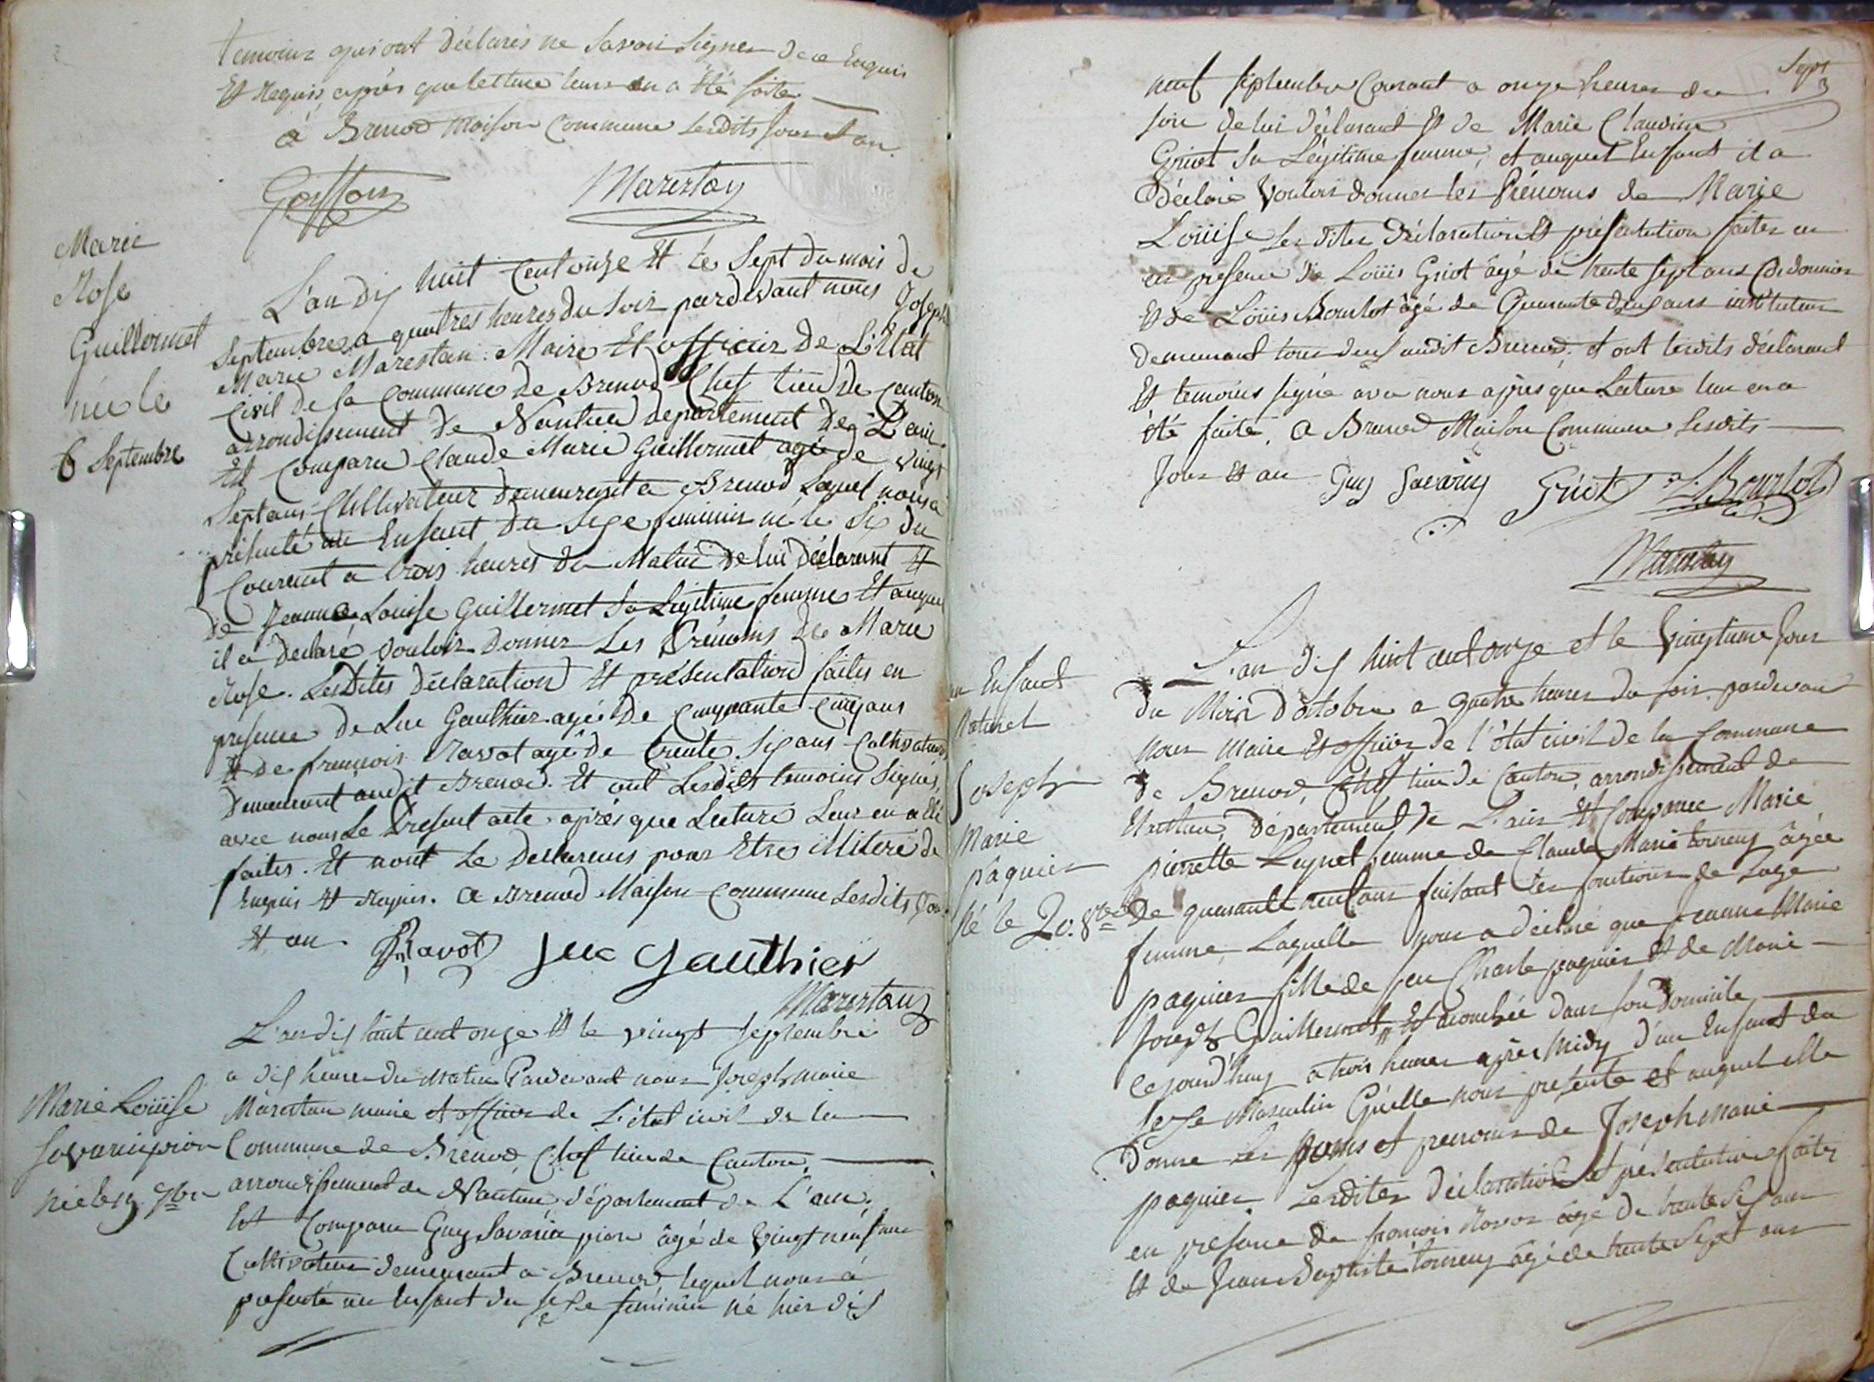 temoins qui ont déclarés ne savoir signer de ce Enquis
Et Requis après que lecture leurs en a été faite
à Brenod Maison Commune lesdits Jour et an.
Marestan
Marie
Rose
Guillermet
née le
6 Septembre
L'an dix huit Cent onze Et le Sept du mois de
Septembre a quatres heures du Soir pardevant nous Joseph
Marie Marestan Maire Et officier De L'Etat
Civil de la Commune de Brenod Chef lieu de Canton
arrondissement de Nantua departement De L'ain.
Est Comparu Claude Marie Guillermet agé de Vingt
Sept ans Cultivateur demeurant a Brenod Lequel nous a
présenté un Enfant Du Sexe feminin né le Six Du
Courant a trois heures du Matin De lui Déclarant Et
De Jeanne Louise Guillermet Sa Légitime femme Et auquel
il a Declaré Vouloir Donner Les Prénoms De Marie
Rose. Lesdites Déclaration Et présentation faites en
presence de Luc Gauthier agé De Cinquante Cinq ans
Et de françois Ravot agé de trente Six ans Cultivateurs
Demeurant audit Brenod. Et ont Lesdits temoins Signés,
avec nous Le Présent acte après que Lecture Leur en a été
faites. Et nont Le Declarant pour Etre illiteré De
Enquis Et Requis. a Brenod Maison Commune Lesdits Jour
Et an Ravot Luc Gauthier
Marestan
Marie Loüise
Savarin pion
née le 19. 7bre
L'an dix huit cent onze Et le vingt Septembre
a dix heures du Matin Pardevant nous Joseph Marie
Marestan maire et officier de L'état civil de la
Commune de Brenod Chef lieu de Canton,
arrondissement de Nantua, département de L'ain,
Est Comparu Guy Savarin pion âgé de Vingt neuf ans
Cultivateur demeurant a Brenod lequel nous a
présenté un Enfant du Sexe féminin né hier dix
Sept
3
neuf Septembre Courant a onze heures du
soir de lui déclarant Et de Marie Claudine
Griot Sa Légitime femme, et auquel Enfant il a
Déclaré Vouloir donner les Prénoms de Marie
Loüise Les dites Déclaration Et présentation faites en
en presence de Loüis Griot âgé de trente Sept ans Cordonnier
Et de Loüis Bourlot âgé de Quarante deux ans instituteur
demeurant tous deux audit Brenod. et ont lesdits déclarant
Et temoins signé avec nous après que Lecture leur en a
été faite, a Brenod Maison Commune Lesdits
Jour Et an Guy Savarin Griot L. Bourlot
Marestan
un Enfant
Naturel
Joseph
Marie
Paquier
Né le 20. 8bre
L'an dix huit cent onze et le Vingtieme Jour
Du Mois D'octobre a quatre heures du soir pardevant
nous Maire Et officier de l'état civil de la Commune
de Brenod, Chef lieu de Canton, arrondissement de
Nantua, Département De L'ain Est Comparue Marie
pierrette femme de Claude Marie tornery âgée
De quarante neuf ans faisant les fonctions de Sage
femme, Laquelle nous a déclaré que Jeanne Marie
paquier fille de feu Charle paquier Et de Marie
Joseph Guillermet, Est accouchée dans son Domicile
Cejourd'huy a trois heures après Midy d'un Enfant du
Sexe Masculin Qu'elle nous présente et auquel elle
Donne les Noms et prenoms de Joseph Marie
paquier Lesdites Déclaration et présentation faites
en presence de francois Ravot âgé De trente Six ans
Et de Jean Baptiste tornery âgé de trente Sept ans